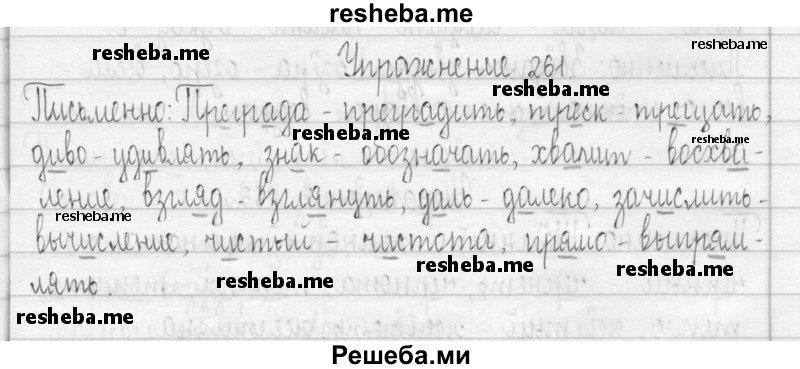 resheba.me
resheba.me
resheba.me
Упражнение 261
resheba.me
Письменно: Преграда - преградить, треск - трещать,
resheba.me
диво - удивлять, знак - обозначать, хвалит - восхва-
ление, взгляд - взглянуть, даль - далеко, зачислить -
resheba.me
вычисление, чистый - чистота, прямо - выпрям-
resheba.me
resheba.me
resheba.me
лять.
resheba.me
Решеба.ми